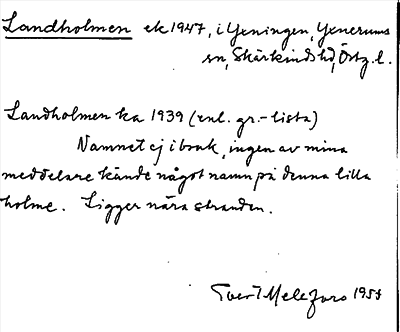 Landholmen ek 1947, i Yxningen, Yxnerums
sn, Skärkinds hd, Östg. l.
Landholmen ka 1939 (enl. gr.-lista)
Namnet ej i bruk, ingen av mina
meddelare kände något namn på denna lilla
holme. Ligger nära stranden.
Melefors 1957